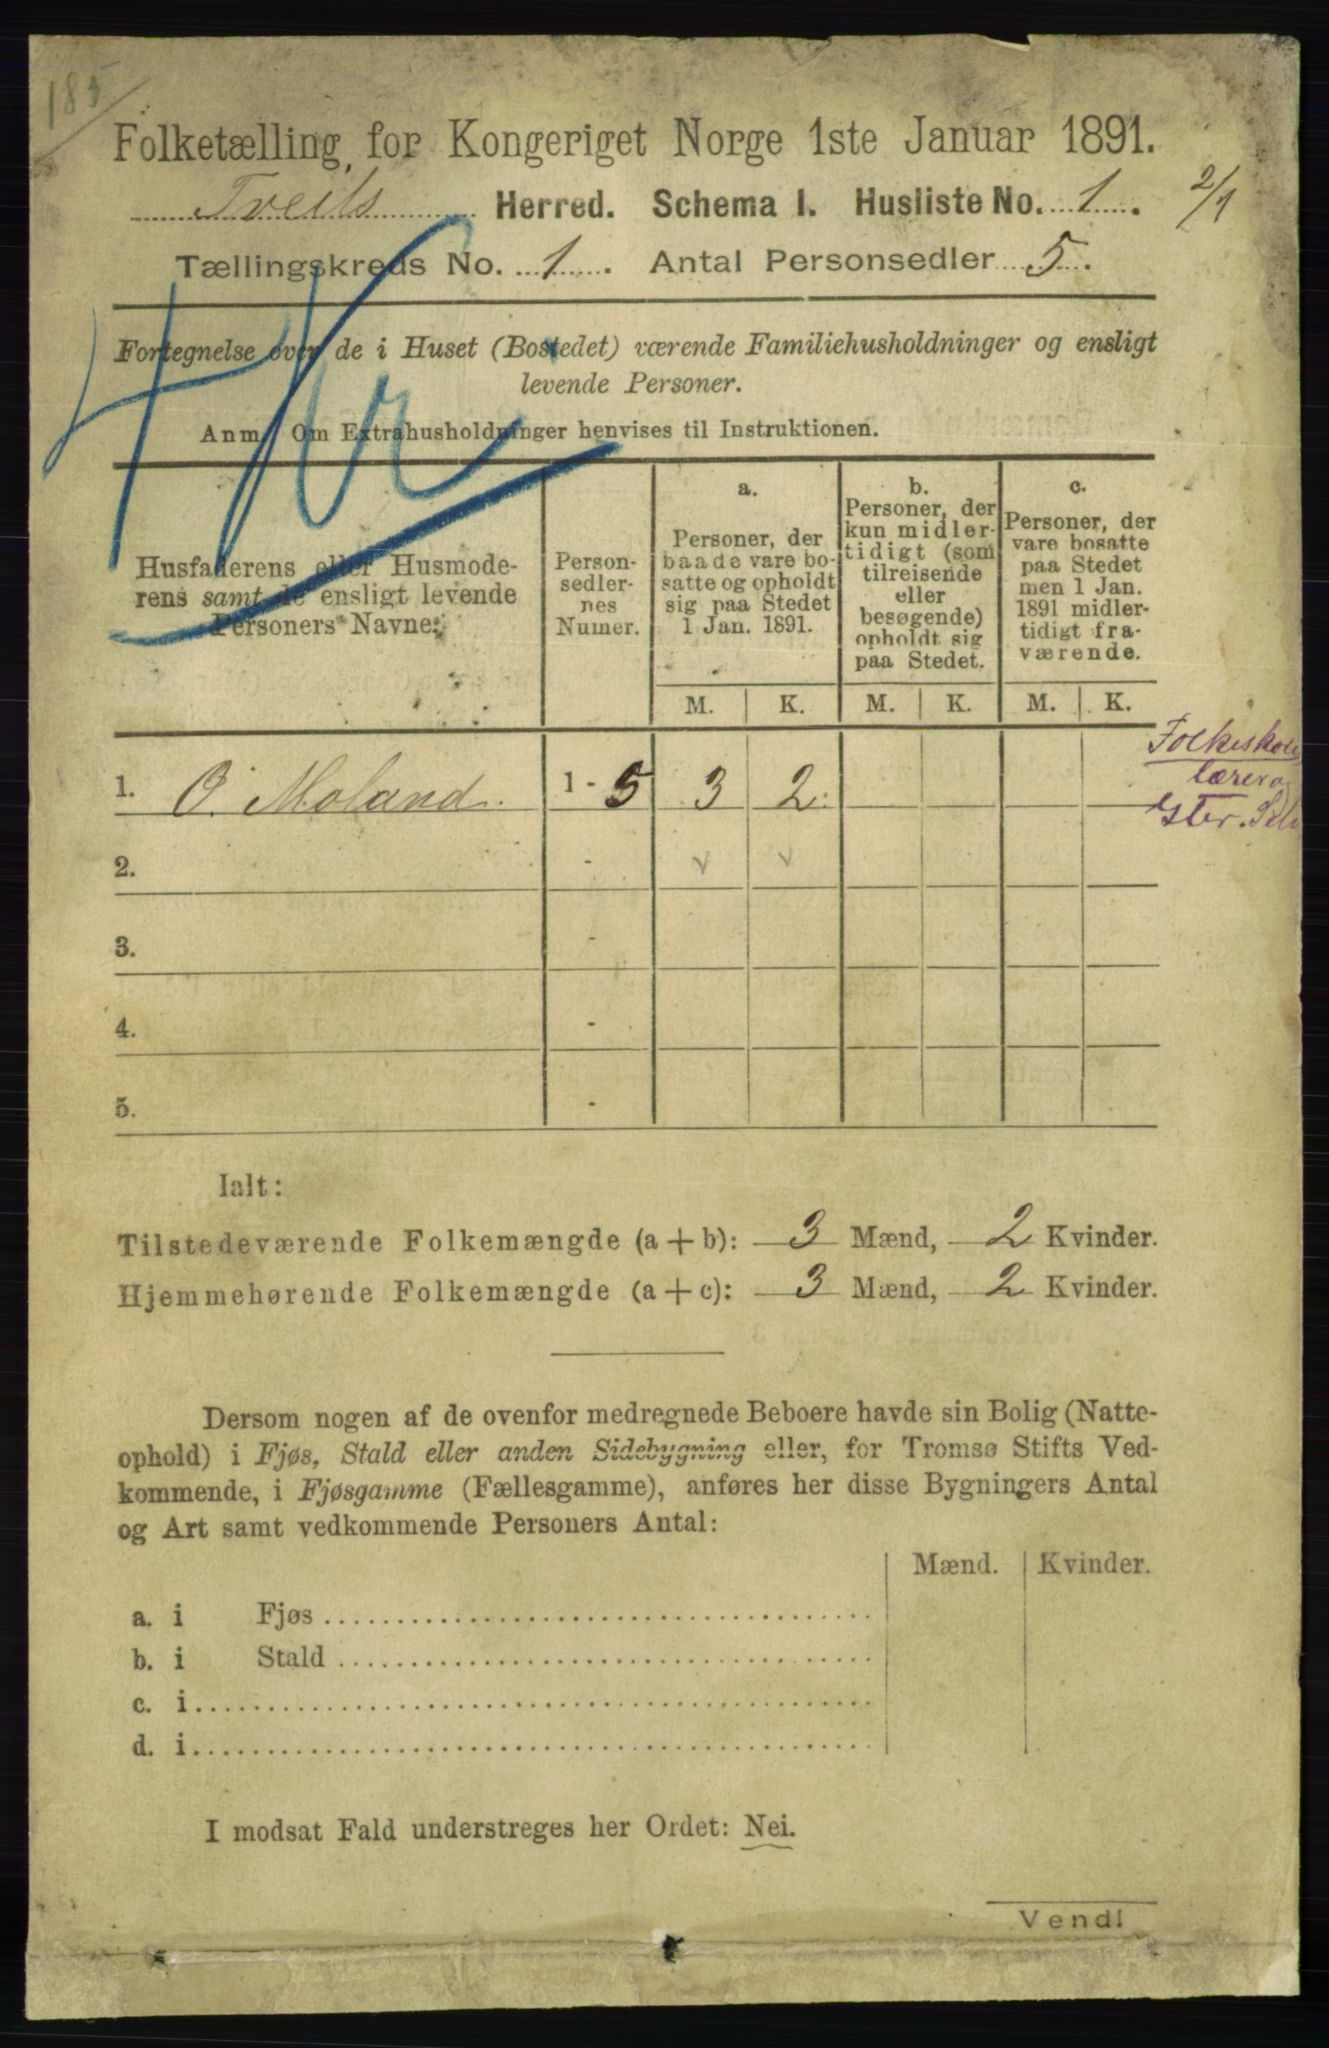 185
Folketælling for Kongeriget Norge 1ste Januar 1891.
Tveits Herred. Schema I. Husliste No. 1. 2/1
Tællingskreds No. 1. Antal Personsedler 5.
Fortegnelse over de i Huset (Bostedet) værende Familiehusholdninger og ensligt
levende Personer.
Anm. Om Extrahusholdninger henvises til Instruktionen.
Husfaderens eller Husmode-
rens samt de ensligt levende
Personers Navne:
Person-
sedler-
nes
Numer.
a.
Personer, der
baade vare bo-
satte og opholdt
sig paa Stedet
1 Jan. 1891.
b.
Personer, der
kun midler-
tidigt (som
tilreisende
eller
besøgende)
opholdt sig
paa Stedet.
c.
Personer, der
vare bosatte
paa Stedet
men 1 Jan.
1891 midler-
tidigt fra-
værende.
M. K. M. K. M. K.
1. O. Moland. 1 - 5 3 2.
Folkeskole
lærer o
2. -
3. -
4. -
5. -
Ialt:
Tilstedeværende Folkemængde (a + b): 3 Mænd, 2 Kvinder.
Hjemmehørende Folkemængde (a + c): 3 Mænd, 2 Kvinder.
Dersom nogen af de ovenfor medregnede Beboere havde sin Bolig (Natte-
ophold) i Fjøs, Stald eller anden Sidebygning eller, for Tromsø Stifts Ved-
kommende, i Fjøsgamme (Fællesgamme), anføres her disse Bygningers Antal
og Art samt vedkommende Personers Antal:
Mænd. Kvinder.
a. i Fjøs
b. i Stald
c. i
d. i
I modsat Fald understreges her Ordet: Nei.
Vend!